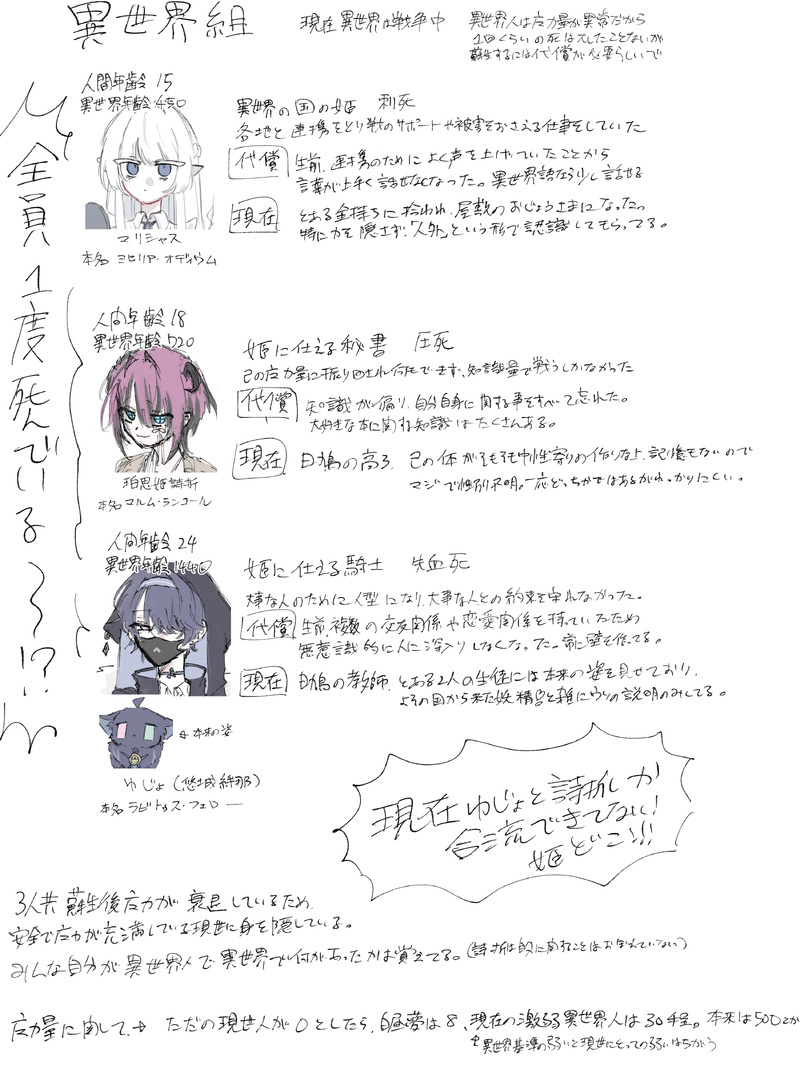 異世界組
現在 異世界は戦争中
異世界人は応力量が異常だから
1回くらいの死は大したことないが
蘇生するには代償が必要らしいで
全員1度死んでいる〜!?
人間年齢 15
異世界年齢 450
異世界の国の姫 刺死
各地と連携をとり戦のサポートや被害をおさえる仕事をしていた
代償 生前、連携のためによく声を上げていたことから
言葉が上手く話せなくなった。異世界語なら少し話せる
現在 とある金持ちに拾われ、屋敷のおじょうさまになったっ
特に力を隠さず「人外」という形で認識してもらってる。
マリシャス
本名 ミセリア・オディウム
人間年齢 18
異世界年齢 720
姫に仕える秘書 圧死
己の応力量に振り回され何もできず、知識量で戦うしかなかった
代償 知識が偏り、自分自身に関する事をすべて忘れた。
大好きな本に関する知識はたくさんある。
現在 白鳩の高3、己の体がそもそも中性寄りの作りな上、記憶もないので
マジで性別不明。一応どっちかではあるがわっかりにくい。
珀思姫詩折
本名 マルム・ランコール
人間年齢 24
異世界年齢 1440
姫に仕える騎士 失血死
大事な人のために人型になり、大事な人との約束を守れなかった。
代償 生前、複数の交友関係や恋愛関係を持っていたため
無意識的に人に深入りしなくなった。常に壁を作ってる。
現在 白鳩の教師、とある2人の生徒には本来の姿を見せており、
よその国から来た妖精官と雑にウソの説明のみしてる。
←本来の姿
ゆじょ(悠城絆那)
本名 ラビトゥス・フェロー
現在ゆじょと詩折しか
合流できてない!
姫どこ!!!
3人共蘇生後応力が衰退しているため、
安全で応力が充満している現世に身を隠している。
みんな自分が異世界人で異世界で何があったかは覚えてる。(詩折は自分に関することはおぼえていない)
応力量に関して、→ ただの現世人が0としたら、白昼夢は8、現在の激弱異世界人は30程。本来は500とか
↑異世界基準の弱いと現世にとっての弱いはちがう